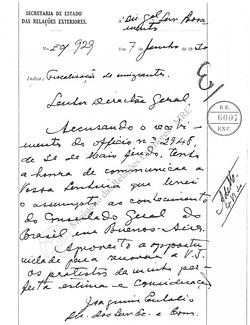 SECRETARIA DE ESTADO
DAS RELAÇÕES EXTERIORES.
Nº 29 929
Em 7 Junho de 19
Indice: Fiscalização de emigrantes.
Senhor Director Geral.
Accusando o recebi-
mento do officio nº 2948,
de 20 de Maio findo, tenho
a honra de communicar a
Vossa Senhoria que levei
o assumpto ao conhecimento
do Consulado Geral do
Brasil em Buenos-Aires.
Aproveito a opportu-
nidade para renovar a V.S.
os protestos da minha per-
feita estima e consideração
Joaquim Eulalio
R E.
6007
EXP.